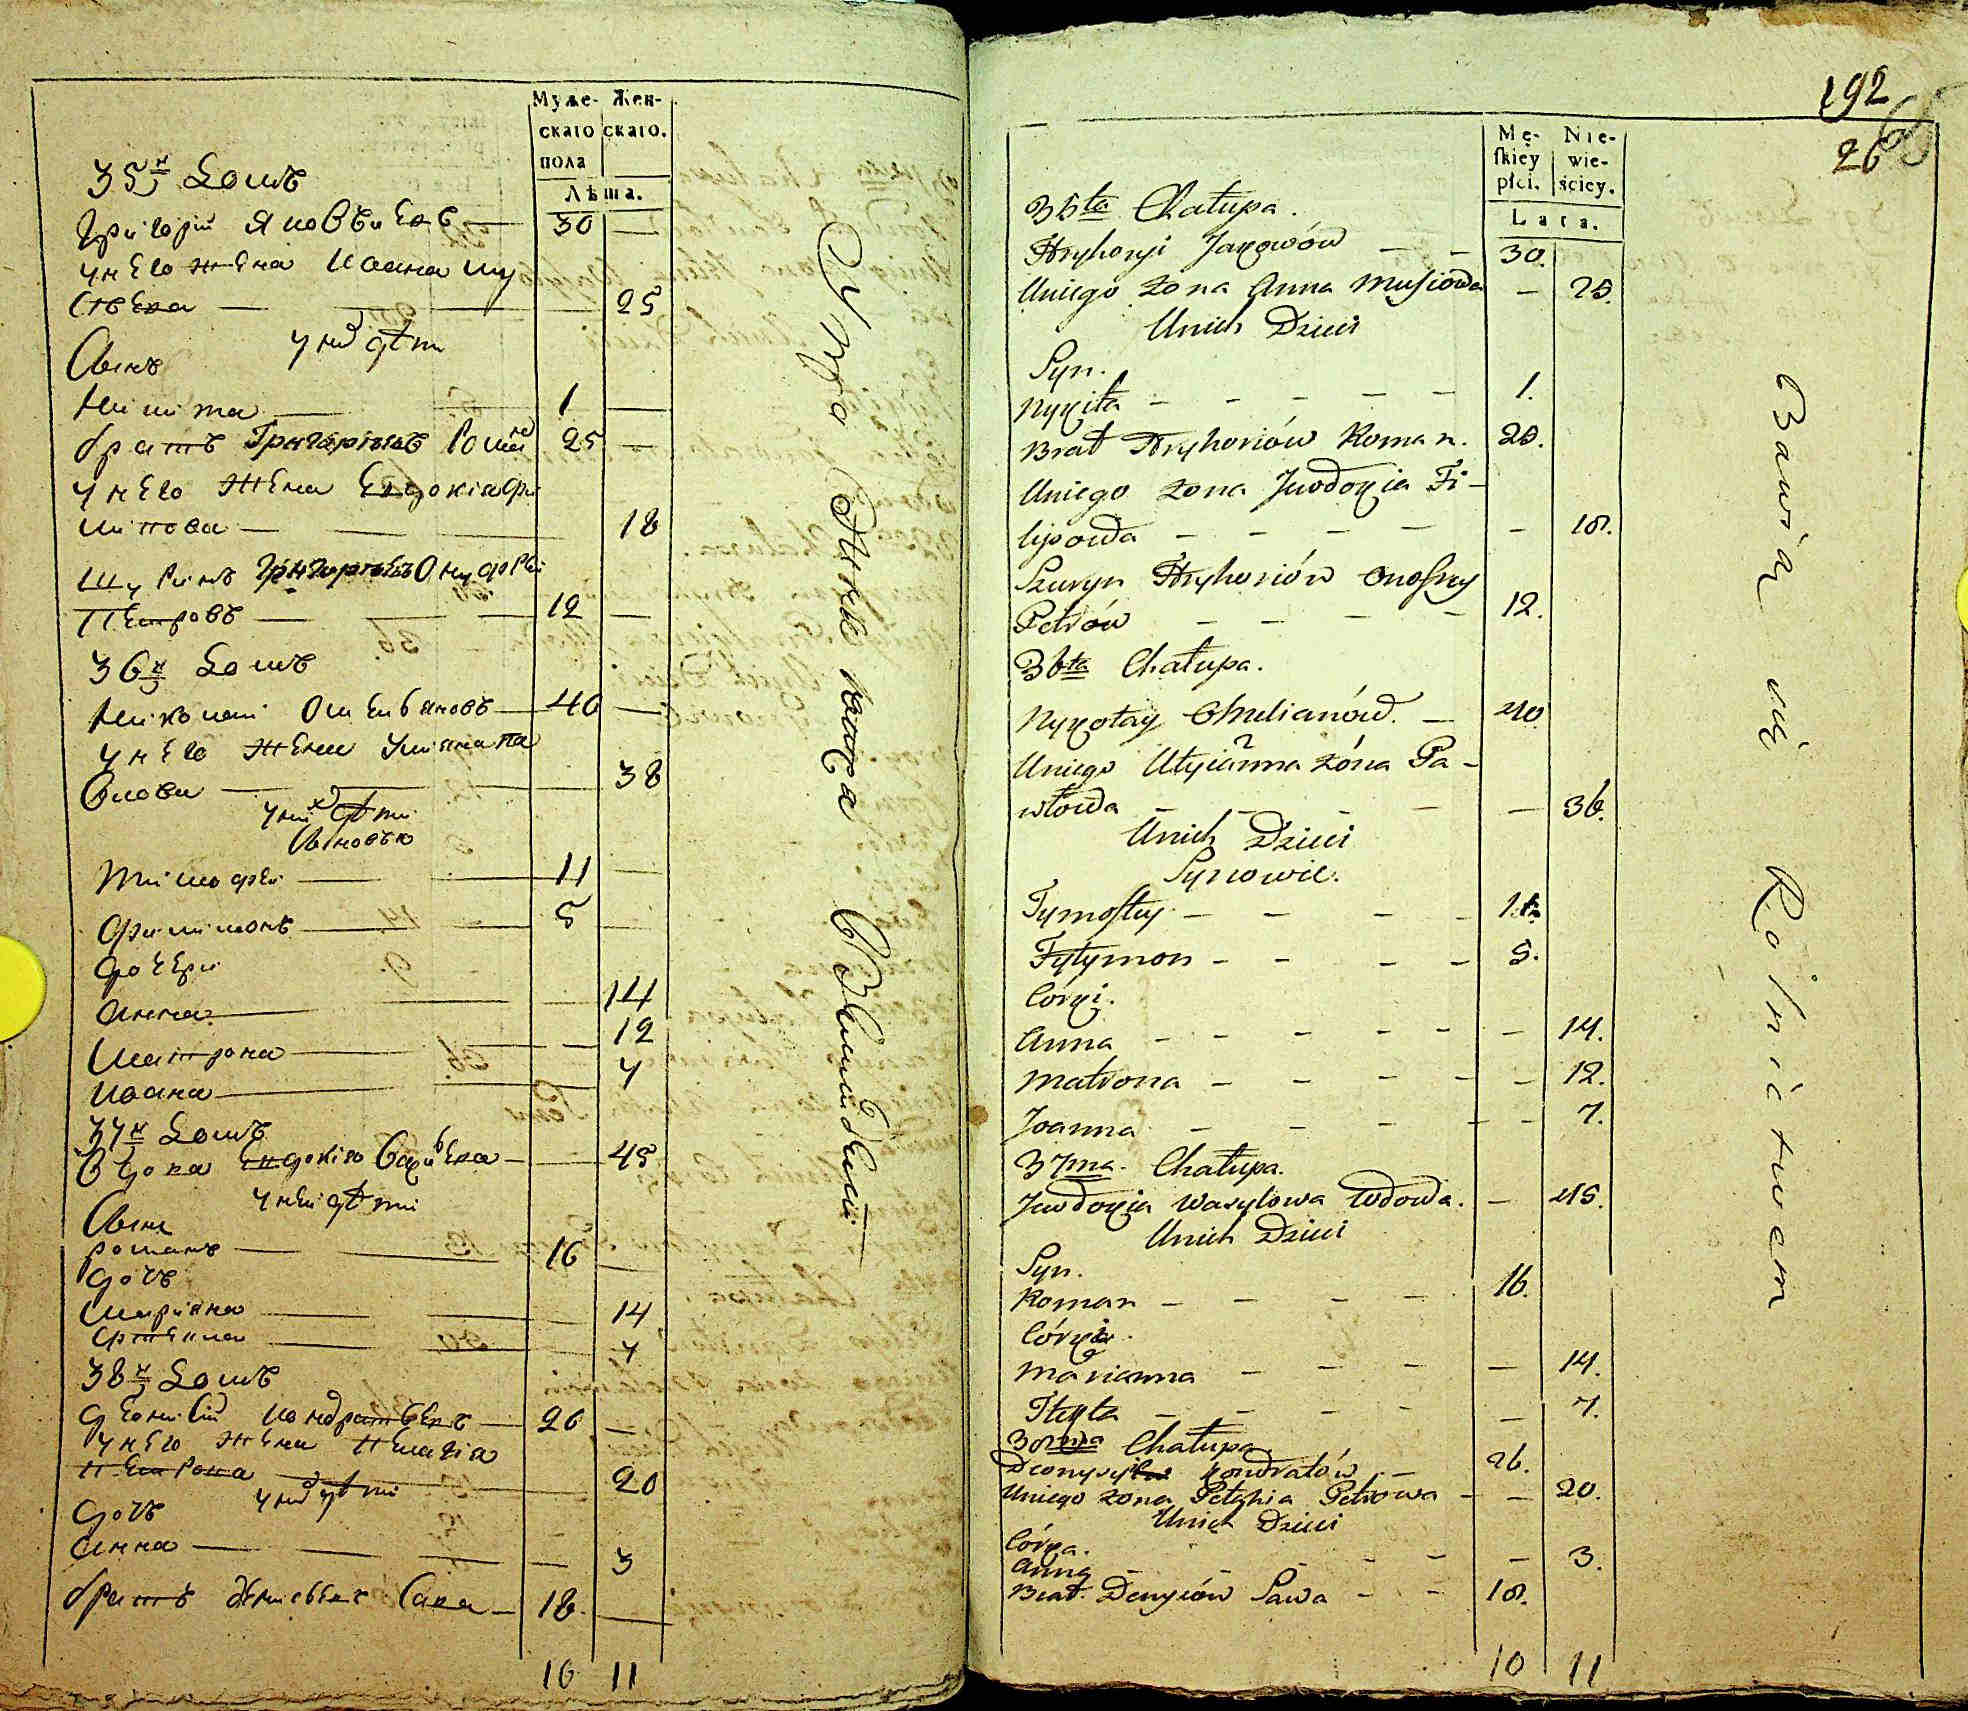 Муже- Жен-
скаго скаго.
пола
Лѣта.
35й Домъ
Григорій Яковъвъ — 30 —
у него жена Иоана Му
сіева — 25
у них дѣти
Сынъ
Никита — 1 —
братъ Григоріевъ Роман 25 —
у него жена Евдокіа Фи
липова — 18
Шуринъ Григоріевъ Онуфрей
Петровъ — 12 —
36й Домъ
Николай Омельяновъ — 40 —
у него жена Улияна Па
влова — 38
у них дѣти
Сыновъя
Тимофей — 11 —
Филимонъ — 5 —
Дочери
Анна — 14
Матрона — 12
Иоана — 7
37й Домъ
Вдова Евдокія Васильева — 45
у ней дѣти
Сынъ
романъ — 16 —
Дочь
Мариана — 14
Фтекла — 7
38й Домъ
Деонисий Кондратьевъ — 26 —
у него жена Пелагіа
Петрова — 20
у них дѣти
Дочь
Анна — 3
братъ Денисьевъ Сава — 18 —
10 11
192
26
Mę- Nie-
skiey wie-
płci. ściey.
Lata.
35ta Chałupa.
Hryhoryi Jakowów — — 30.
Uniego Zona Anna Musiowa — 25.
Unich Dzieci
Syn.
Nykita — — — — — 1.
Brat Hryhoriów Roman. 25.
Uniego Zona Jwdokia Fi-
lipowa — — — — — 18.
Szuryn Hryhoriów Onofrey
Petrów — — — — 12.
36ta Chałupa.
Nykołay Omelianów. — 40
Uniego Ulyianna Zóna Pa-
włowa — — — — 36.
Unich Dzieci
Synowie.
Tymofiy — — — — 11.
Fylymon — — — — 5.
Córki.
Anna — — — — — — 14.
Matrona — — — — — 12.
Joanna — — — — — 7.
37ma. Chałupa.
Jwdokia Wasylowa Wdowa. — 45.
Unich Dzieci
Syn.
Roman — — — — 16.
Córki.
Marianna — — — — 14.
Ftekla — — — — — 7.
38ma Chałupa
Dionysyi Kondratów — 26.
Uniego Zona Pelahia Petrowa — — 20.
Unich Dzieci
Córka.
Anna — — — — — 3.
Brat Denysiów Sawa — — 18.
10 11
Bawią się Rolnictwem